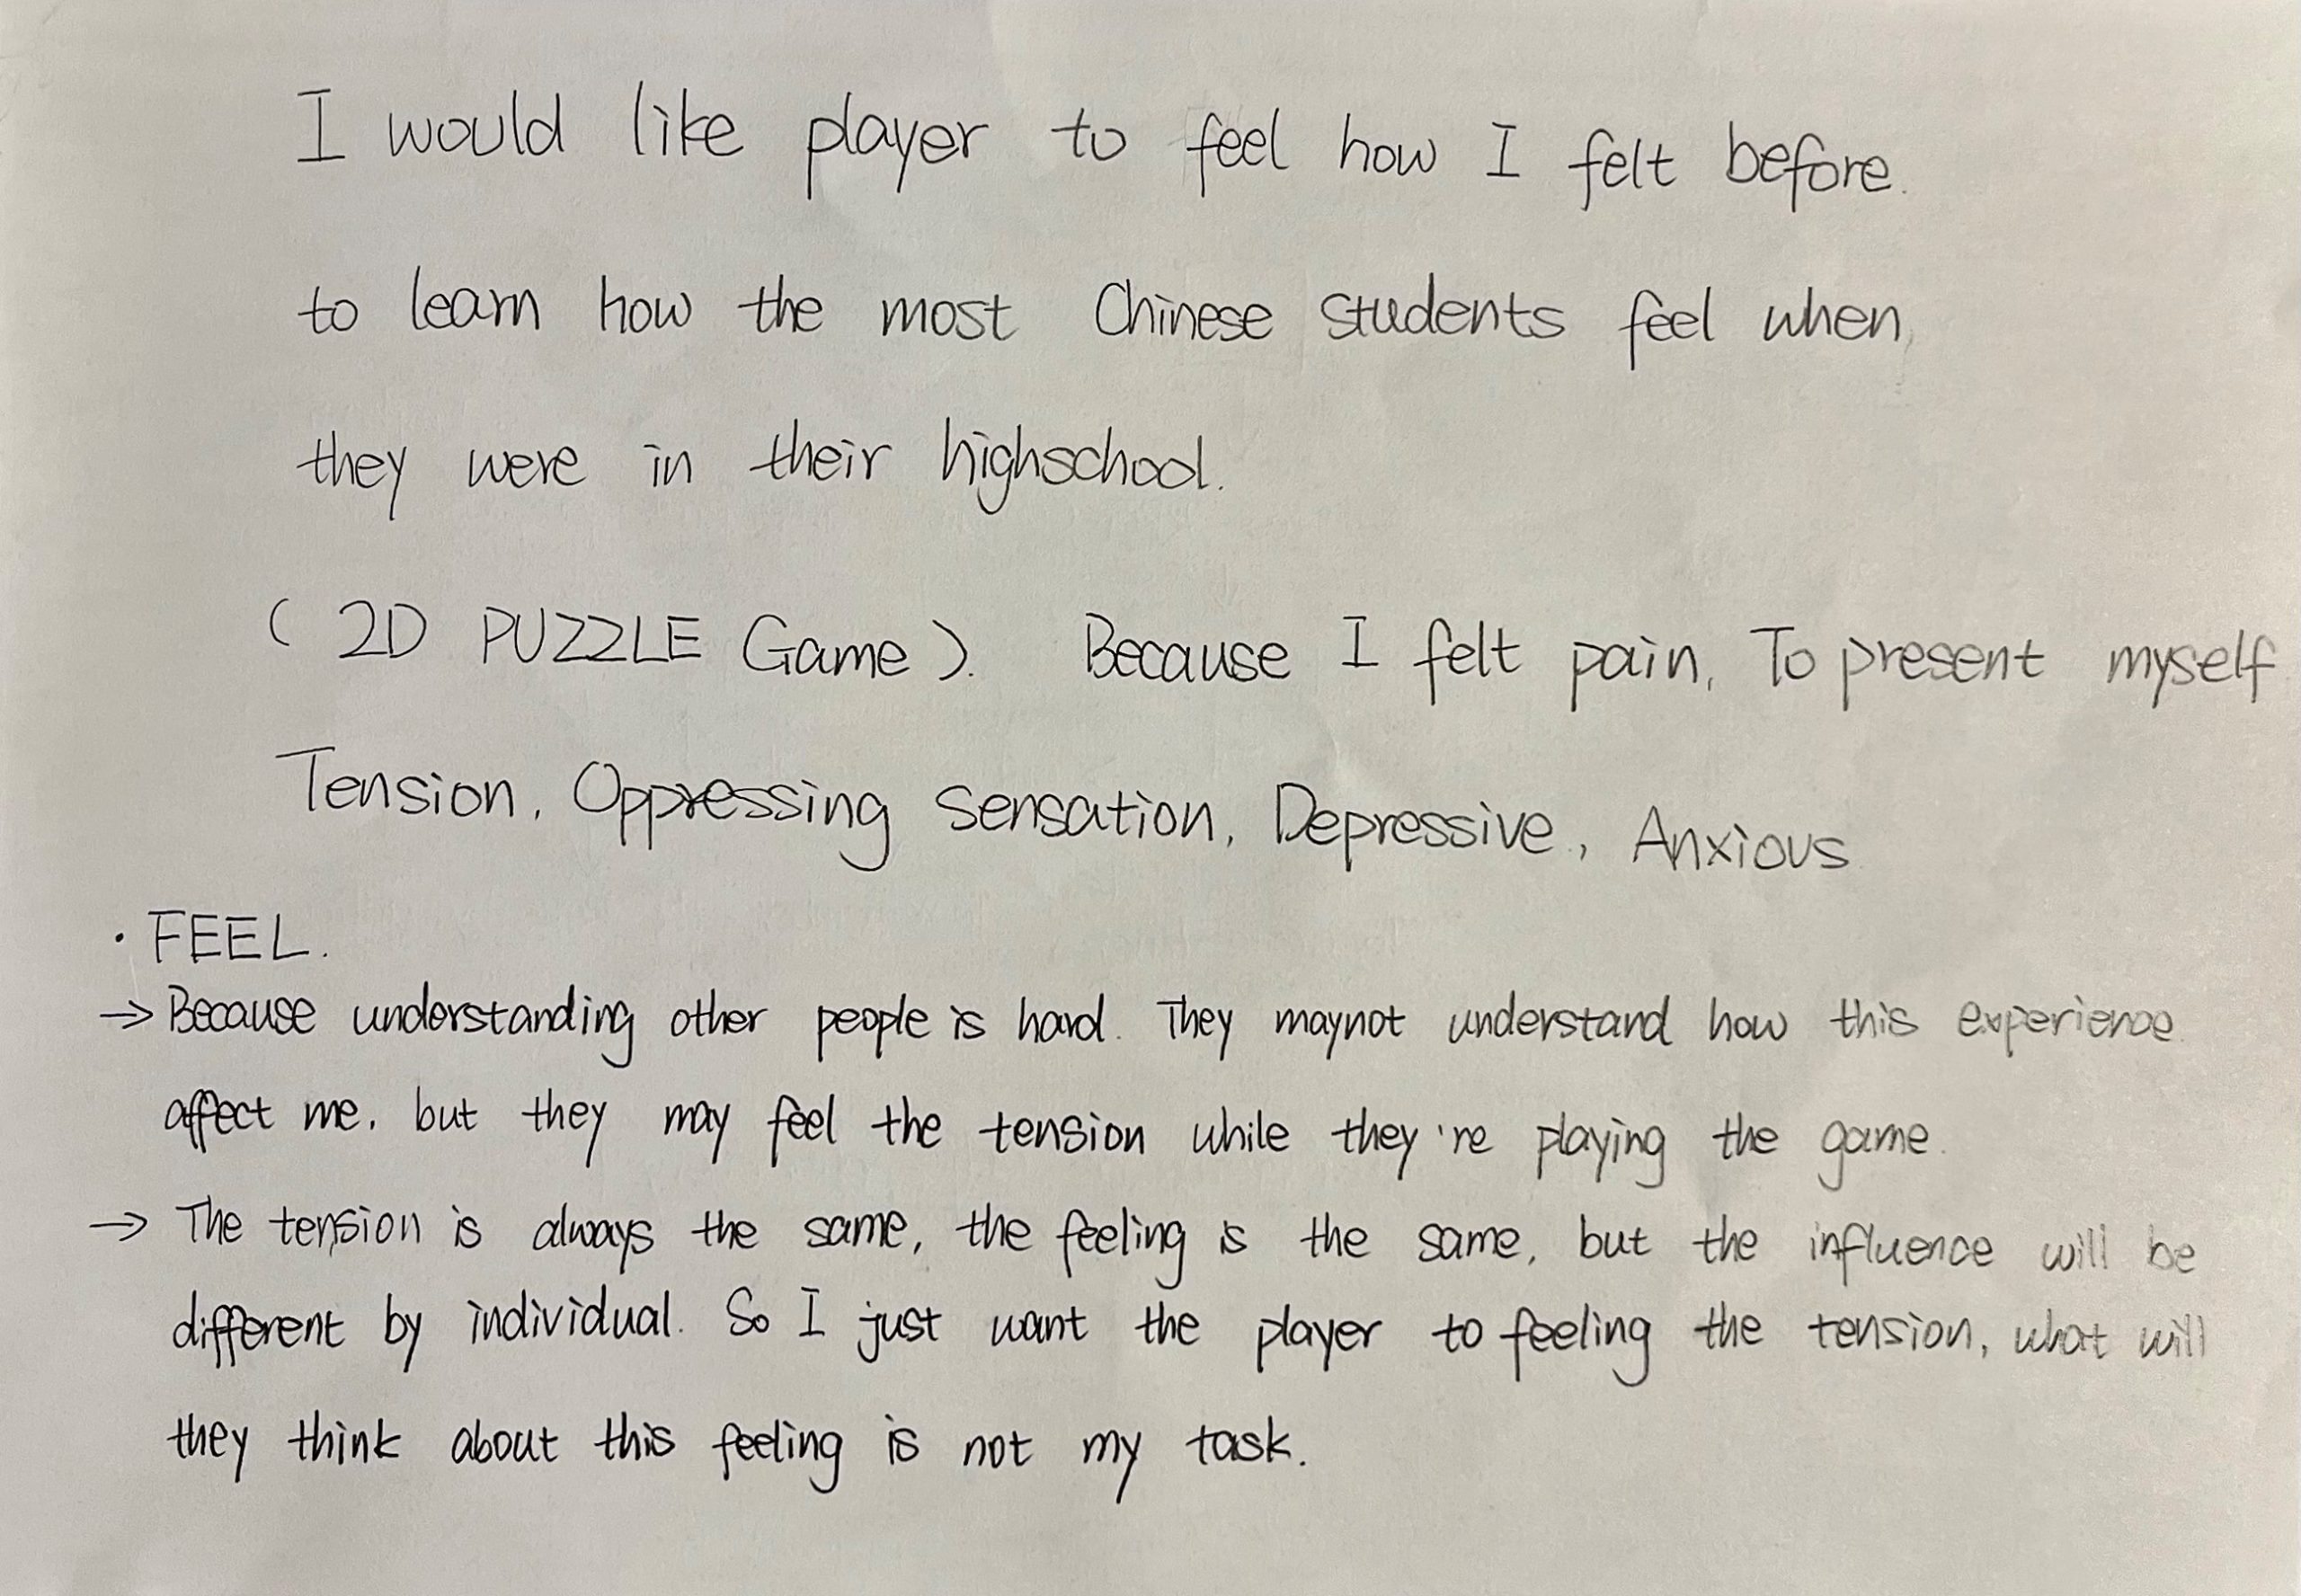 I would like player to feel how I felt before.
to learn how the most Chinese students feel when
they were in their highschool.
( 2D PUZZLE Game ). Because I felt pain, To present myself
Tension, Oppressing sensation, Depressive, Anxious
· FEEL.
→ Because understanding other people is hard. They maynot understand how this experience
affect me, but they may feel the tension while they're playing the game.
→ The tension is always the same, the feeling is the same, but the influence will be
different by individual. So I just want the player to feeling the tension, what will
they think about this feeling is not my task.